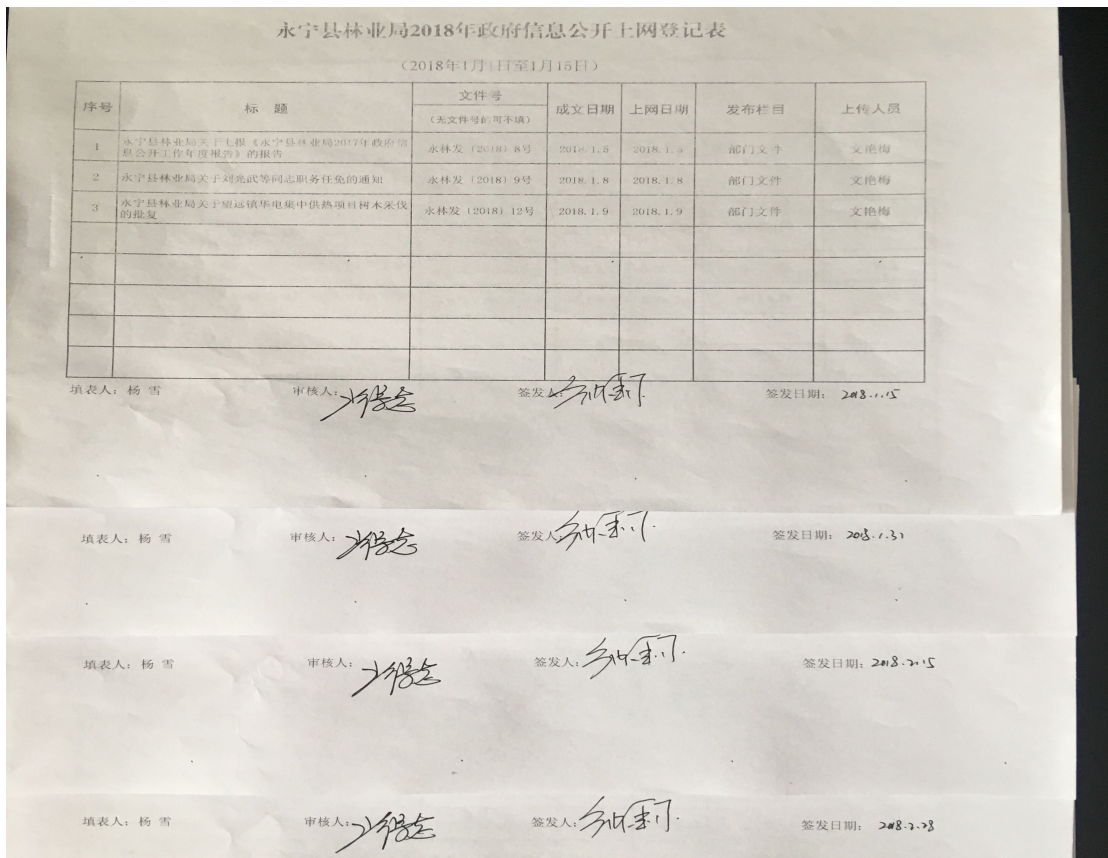 永宁县林业局2018年政府信息公开上网登记表
（2018年1月1日至1月15日）
序号 标 题 文件号 （无文件号的可不填） 成文日期 上网日期 发布栏目 上传人员
1 永宁县林业局关于上报《永宁县林业局2017年政府信息公开工作年度报告》的报告 永林发〔2018〕8号 2018.1.5 2018.1.5 部门文件 文艳梅
2 永宁县林业局关于刘光武等同志职务任免的通知 永林发〔2018〕9号 2018.1.8 2018.1.8 部门文件 文艳梅
3 永宁县林业局关于望远镇华电集中供热项目树木采伐的批复 永林发〔2018〕12号 2018.1.9 2018.1.9 部门文件 文艳梅
填表人：杨 雪 审核人： 签发人： 签发日期： 2018.1.15
填表人：杨 雪 审核人： 签发人： 签发日期： 2018.1.31
填表人：杨 雪 审核人： 签发人： 签发日期：2018.2.15
填表人：杨 雪 审核人： 签发人： 签发日期： 2018.2.28